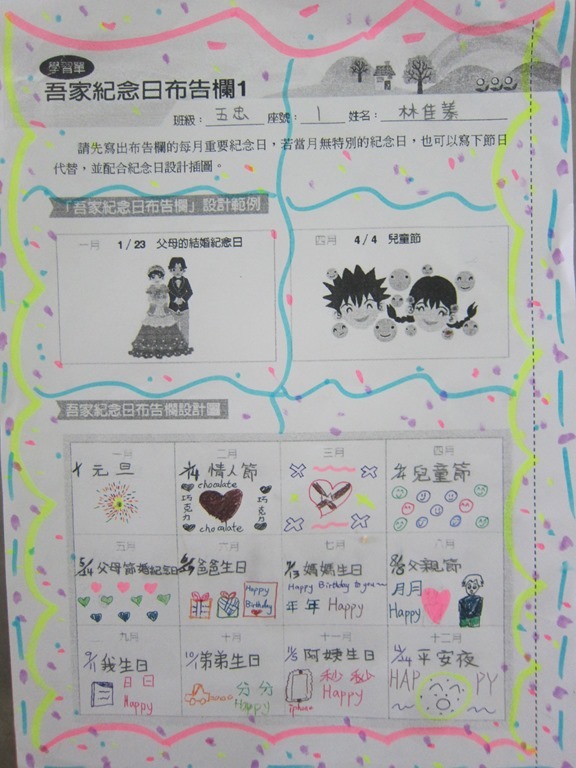 學習單
吾家紀念日布告欄1
班級：五忠 座號：1 姓名：林佳蓁
請先寫出布告欄的每月重要紀念日，若當月無特別的紀念日，也可以寫下節日
代替，並配合紀念日設計插圖。
「吾家紀念日布告欄」設計範例
一月 1/23 父母的結婚紀念日
四月 4/4 兒童節
吾家紀念日布告欄設計圖
一月
元旦
二月
情人節
chocolate
巧克力
巧克力
chocolate
三月
四月
兒童節
五月
5/24 父母結婚紀念日
六月
爸爸生日
Happy
Birthday
七月
媽媽生日
Happy Birthday to you~
年年 Happy
八月
8/8 父親節
月月
Happy
九月
9/1 我生日
日日
Happy
十月
弟弟生日
分分
Happy
十一月
11/5 阿姨生日
秒秒
Happy
iphone
十二月
12/24 平安夜
HAPPY